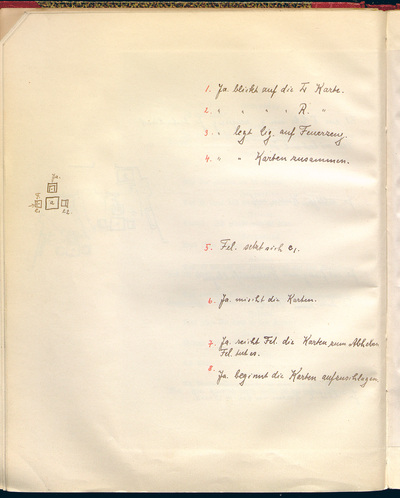 1. Ja. blickt auf die Karte.
2. " " " " R. "
3. " legt Zig. auf Feuerzeug.
4. " " Karten zusammen.
Ja.
a
5. Fel. setzt sich e,.
6. Ja. mischt die Karten.
7. Ja. reicht Fel. die Karten zum Abheben
Fel. tut es.
8. Ja. beginnt die Karten aufzuschlagen